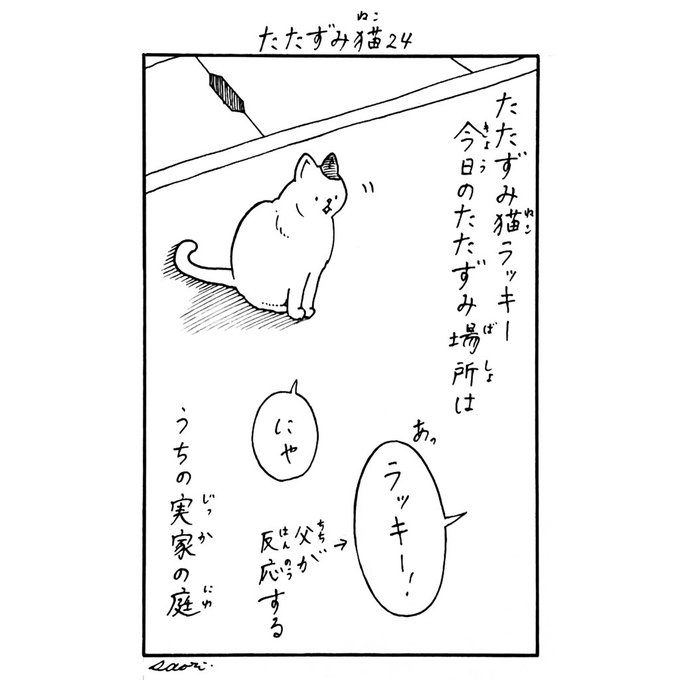 たたずみ猫24
ねこ
たたずみ猫ラッキー
ねこ
今日のたたずみ場所は
きょう
ばしょ
あっ
ラッキー!
→
父が
ちち
反応する
はんのう
にゃ
うちの実家の庭
じっか
にわ
saori.